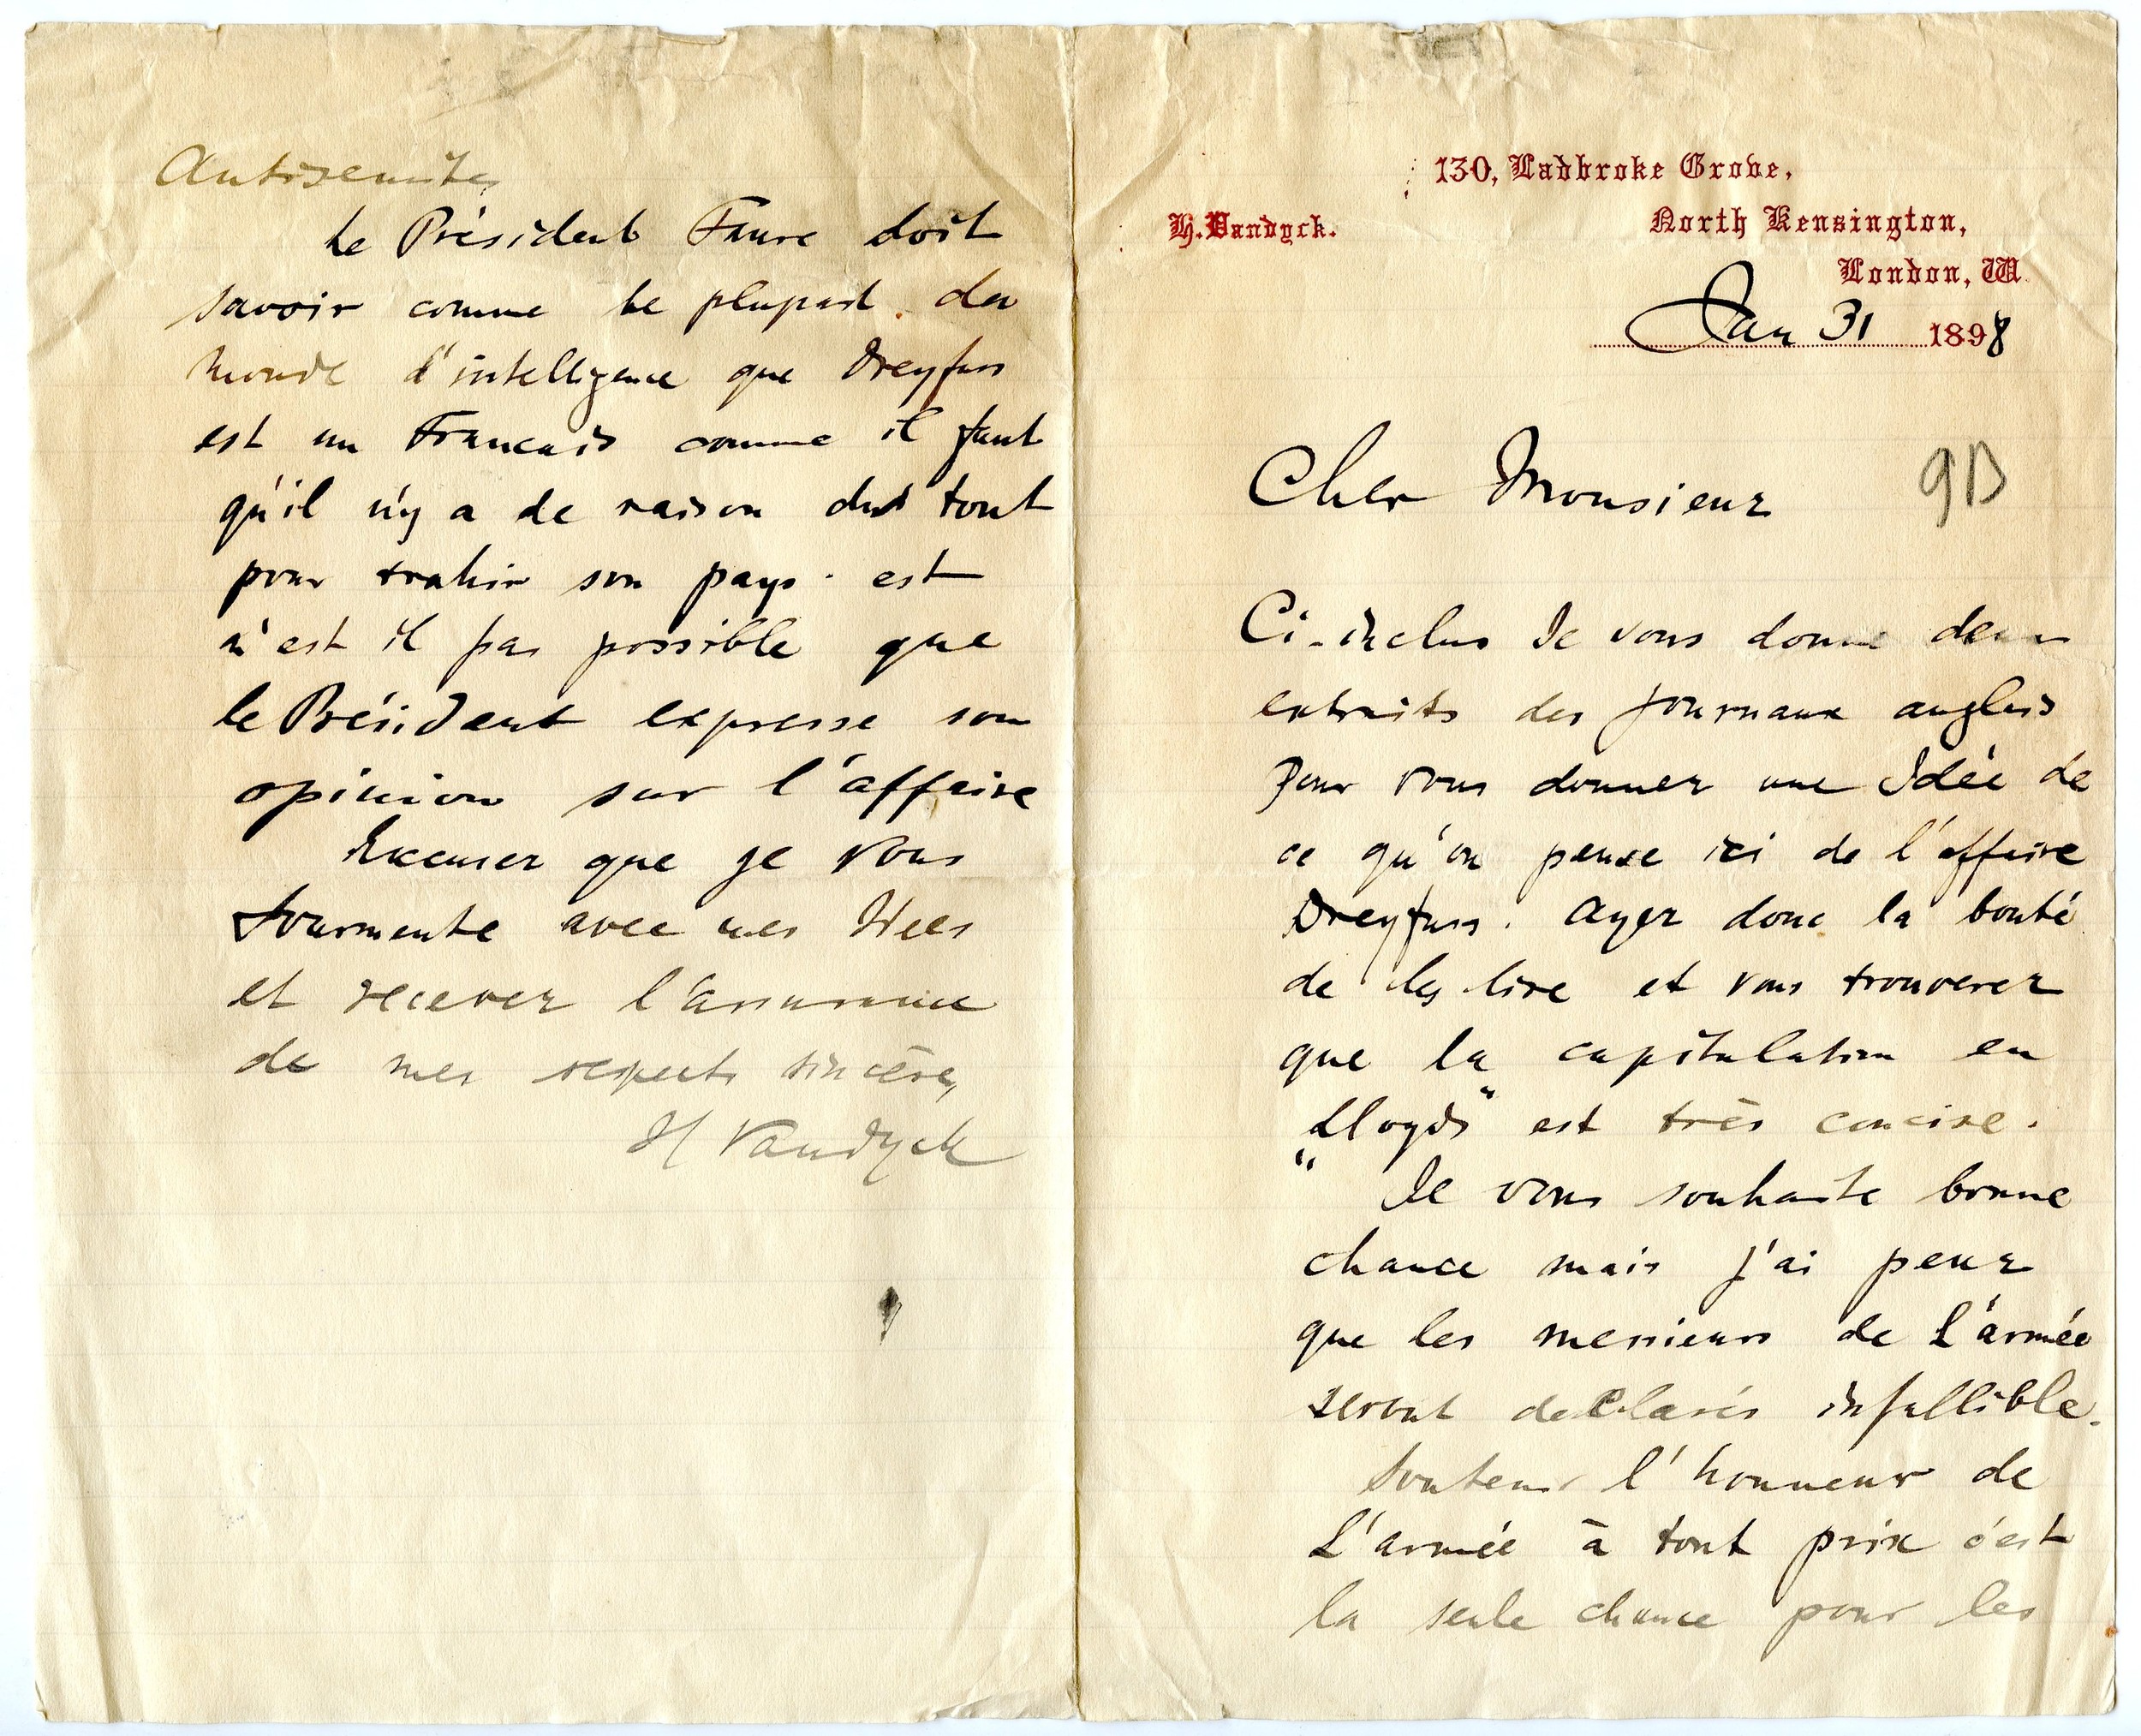 130, Ladbroke Grove,
H. Vandyck.
North Kensington,
London, W.
Jan 31 1898
9B
Cher Monsieur
Ci-inclus Je vous donne deux
extraits des journaux anglais
pour vous donner une Idée de
ce qu'on pense ici de l'affaire
Dreyfuss. Ayez donc la bonté
de les lire et vous trouverez
que la capitulation en
"Lloyds" est très concise.
Je vous souhaite bonne
chance mais j'ai peur
que les messieurs de L'armée
seront declarés infallible.
Soutenir l'honneur de
L'armée à tout prix c'est
la seule chance pour les
Antisemites
Le Président Faure doit
savoir comme le plupart du
monde d'intelligence que Dreyfuss
est un Francais comme il faut
qu'il n'y a de raison du tout
pour trahir son pays. est
n'est il pas possible que
le Président expresse son
opinion sur l'affaire
Excusez que je vous
tourmente avec mes Idees
et recevez l'assurance
de mes respects sincères
H Vandyck